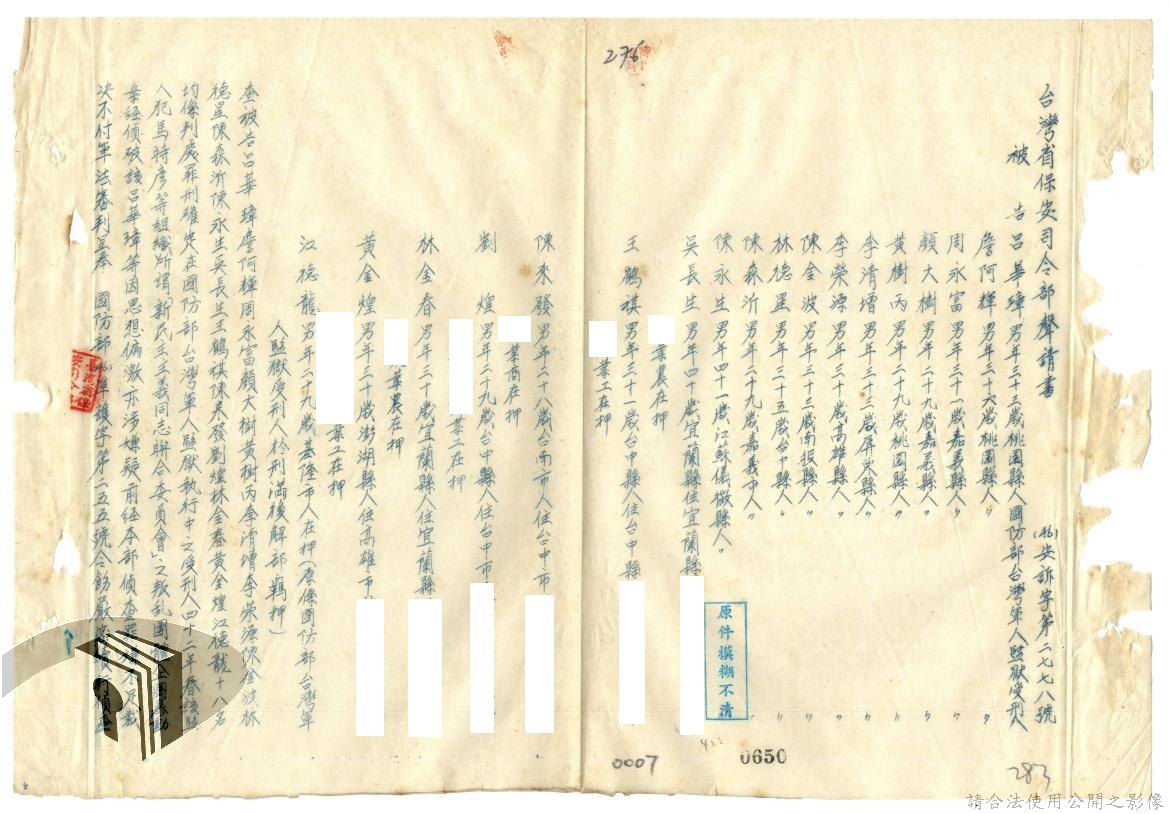 台灣省保安司令部聲請書
(46)安訴字第二七七八號
被告呂華璋男年三十三歲桃園縣人國防部台灣軍人監獄受刑人
詹阿輝男年三十六歲桃園縣人〃〃
周永富男年三十一歲嘉義縣人〃〃
顏大樹男年二十九歲嘉義縣人〃〃
黃樹丙男年二十九歲桃園縣人〃〃
李清增男年三十三歲屏東縣人〃〃
李榮源男年三十歲高雄縣人〃〃
陳金波男年三十三歲南投縣人〃〃
林德星男年三十五歲台中縣人〃〃
陳森沂男年二十九歲嘉義市人〃〃
陳永生男年四十一歲江蘇儀徵縣人〃〃
吳長生男年四十歲宜蘭縣住宜蘭縣
業農在押
王鶴祺男年三十一歲台中縣人住台中縣
業工在押
陳來發男年二十八歲台南市人住台中市
業商在押
劉煌男年二十九歲台中縣人住台中市
業工在押
林金春男年三十歲宜蘭縣人住宜蘭縣
業農在押
黃金煌男年三十歲澎湖縣人住高雄市
業工在押
江德龍男年二十九歲基隆市人在押(原係國防部台灣軍
人監獄受刑人於刑滿後解部羈押)
查被告呂華璋詹阿輝周永富顏大樹黃樹丙李清增李榮源陳金波林
德星陳森沂陳永生吳長生王鶴祺陳來發劉煌林金春黃金煌江德龍十八名
均係判處罪刑確定在國防部台灣軍人監獄執行中之受刑人四十二年春該監
人犯馬時彥等組織所謂「新民主主義同志聯合委員會」之叛乱團體企圖暴動
案經偵破該呂華璋等因思想偏激亦涉嫌疑前經本部偵查罪嫌不足裁
決不付軍法審判呈奉 國防部(46)準鎮字第二五五號令飭嚴密偵查
原件模糊不清
276
283
422
0007
0650
請合法使用公開之影像